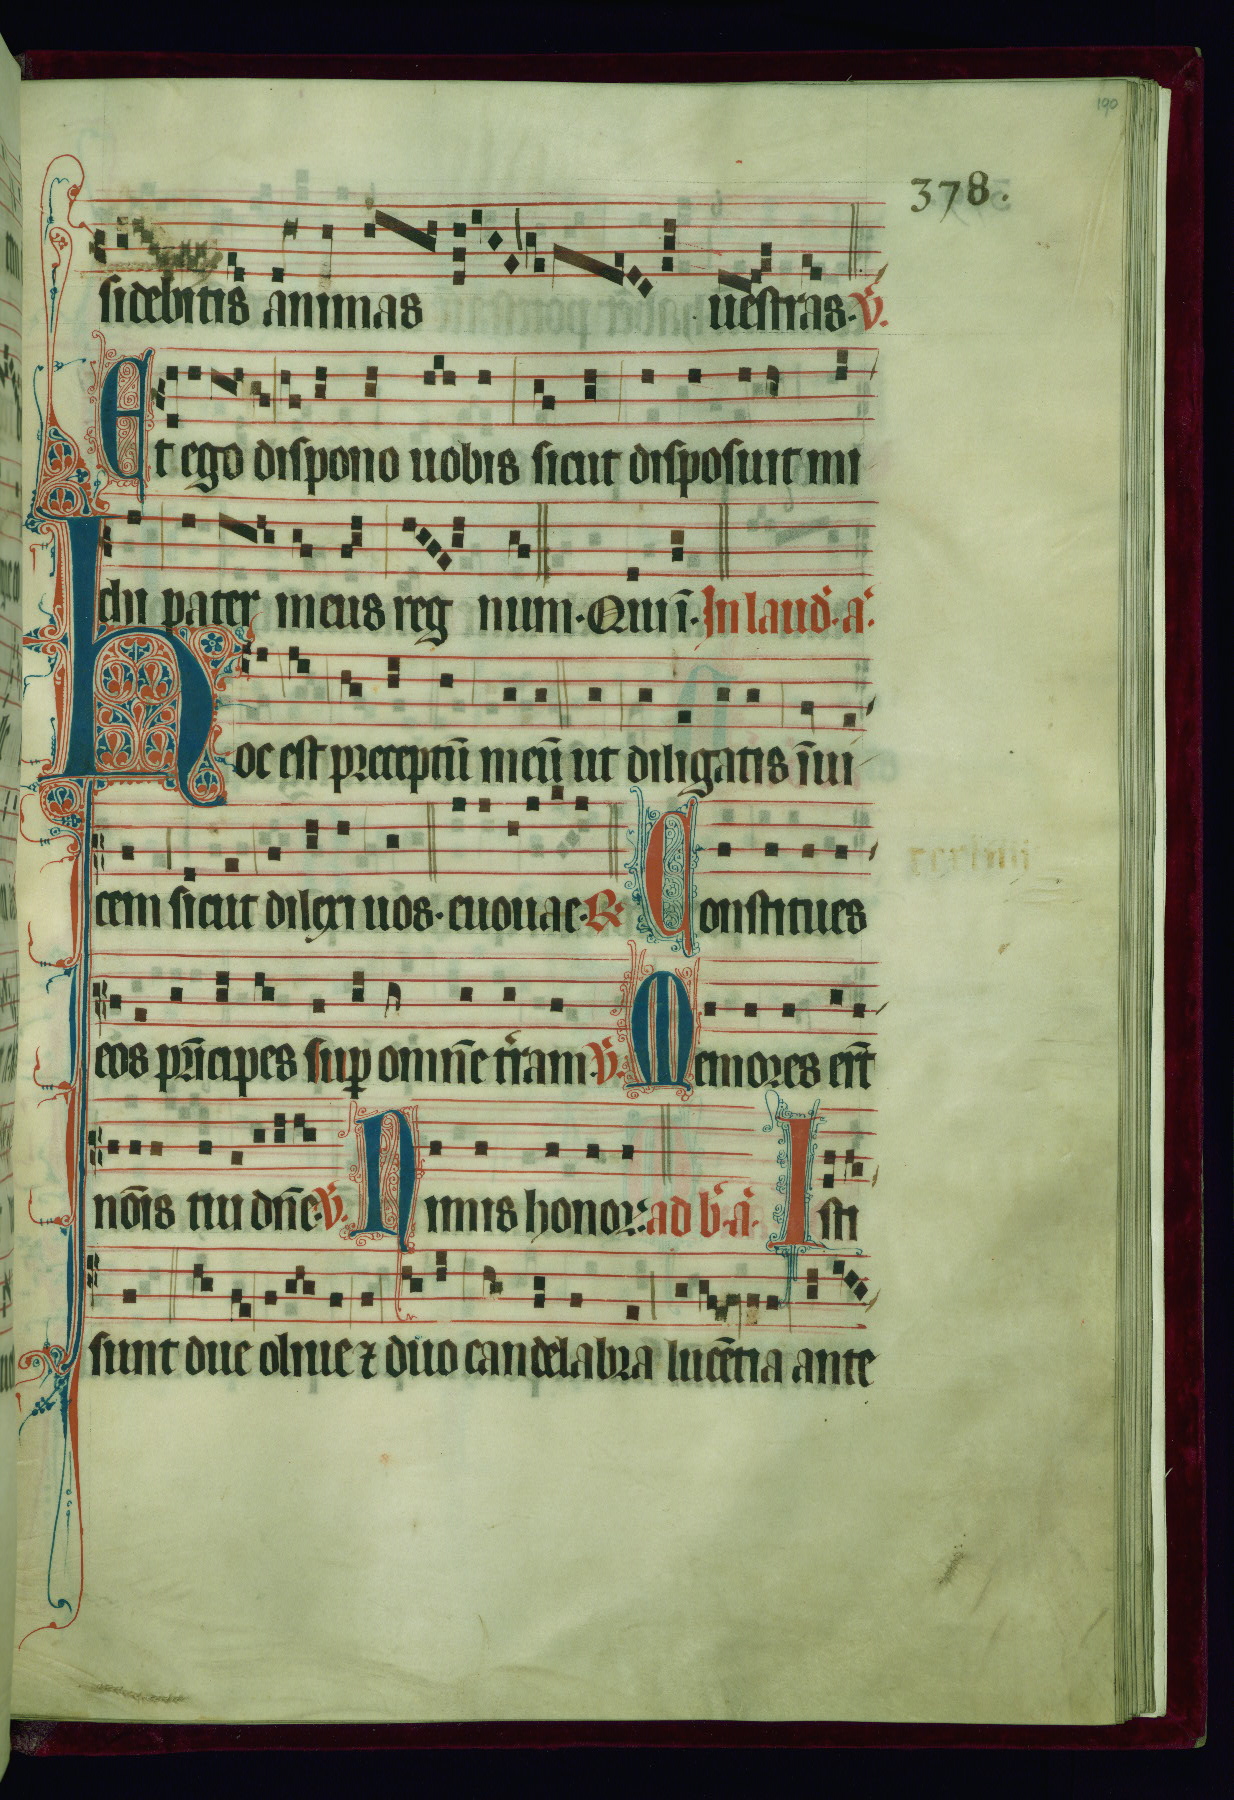 190
378.
sidebitis animas uestras. V̄.
Et ego dispono uobis sicut disposuit mi
chi pater meus reg num. Qui ī. In laud̄. ā.
Hoc est preceptū meū ut diligatis īui
cem sicut dilexi uos. euouae. R̄. Constitues
eos pr̄icipes suꝑ omn̄e tr̄am. V̄. Memores er̄t
nōis tui dn̄e. V̄. Nimis honor̄. ad b̄. ā. Isti
sunt due oliue ⁊ duo candelabra lucētia ante